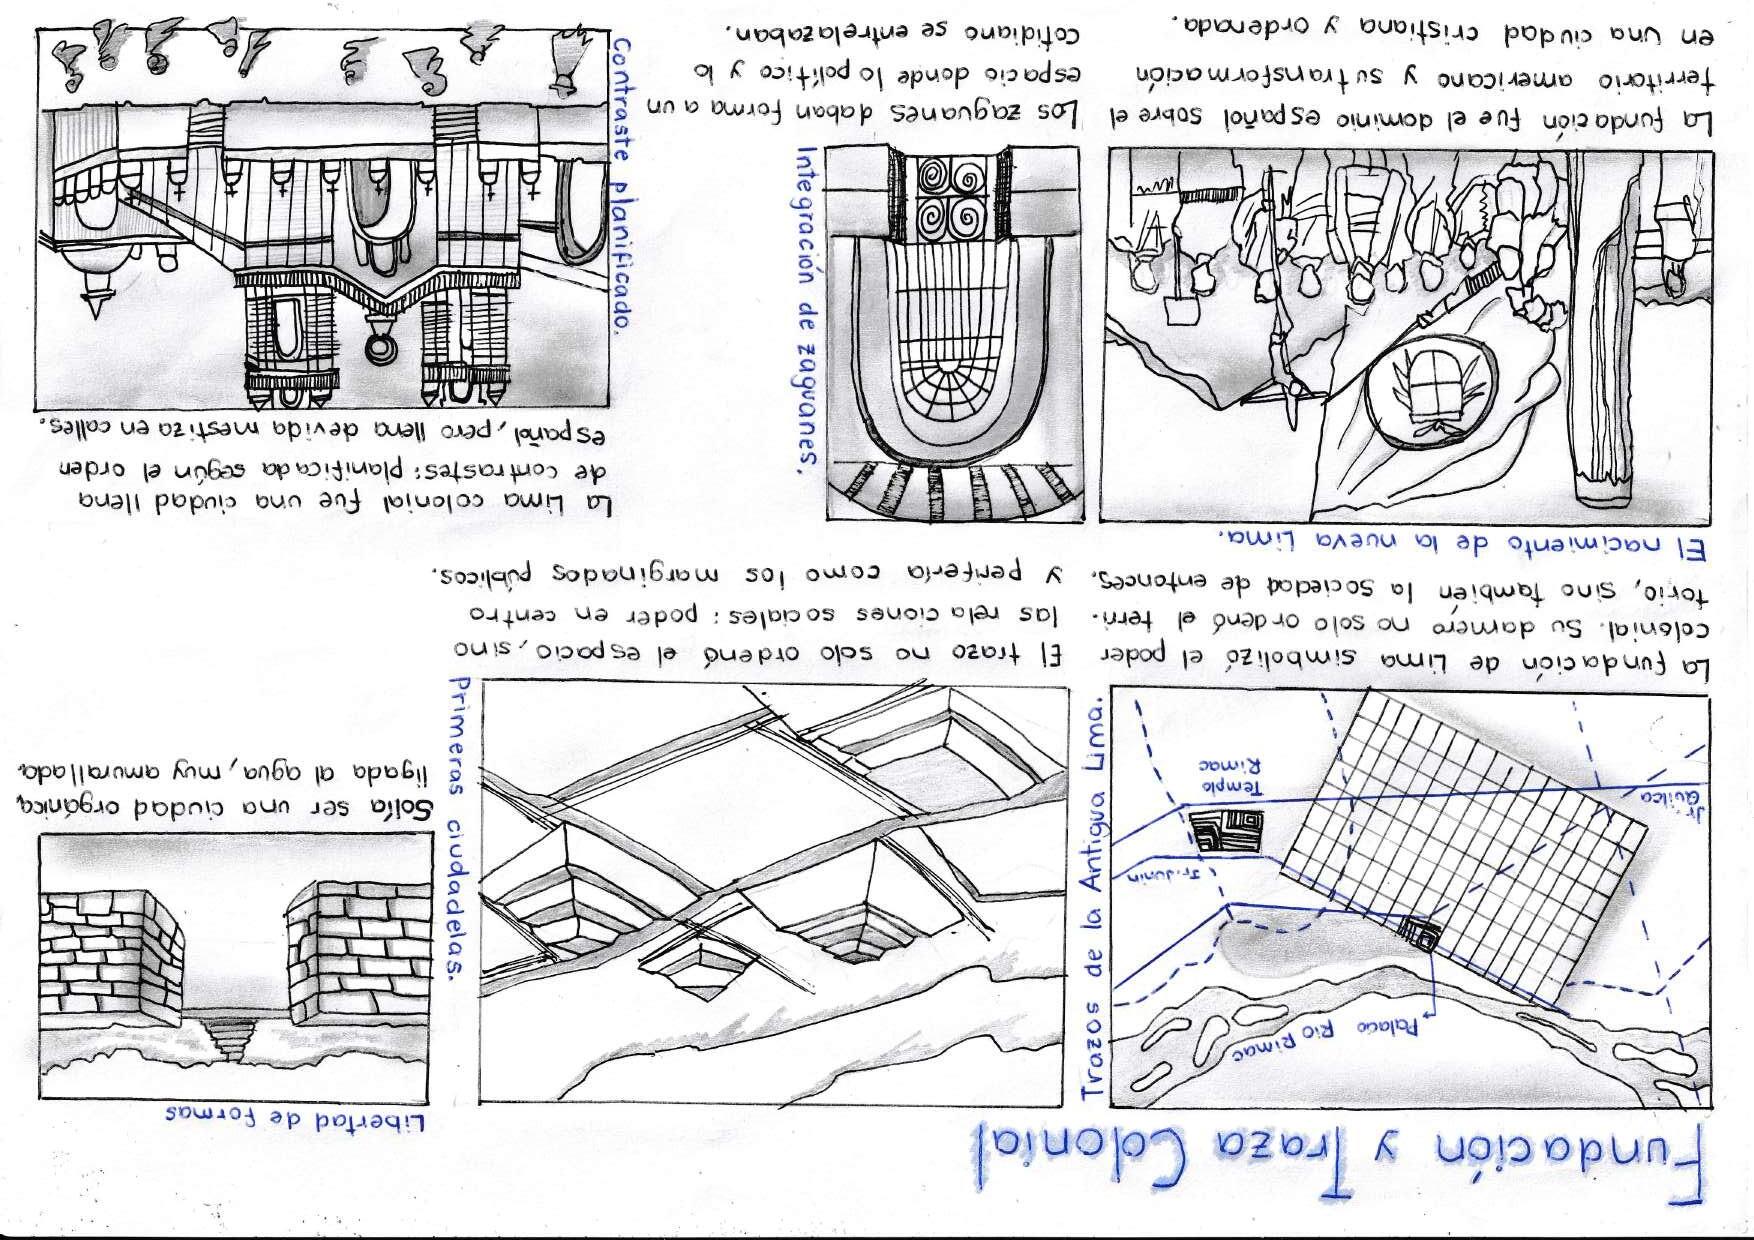 Fundación y Traza Colonial
Trazos de la Antigua Lima.
Palacio
Río Rimac
Jr. Junin
Templo
Rimac
Jr.
Quilca
La fundación de Lima simbolizó el poder
colonial. Su damero no solo ordenó el terri-
torio, sino también la sociedad de entonces.
Primeras ciudadelas.
El trazo no solo ordenó el espacio, sino
las relaciones sociales: poder en centro
y periferia como los marginados públicos.
Libertad de formas
Solía ser una ciudad orgánica,
ligada al agua, muy amurallada.
El nacimiento de la nueva Lima.
La fundación fue el dominio español sobre el
territorio americano y su transformación
en una ciudad cristiana y ordenada.
Integración de zaguanes.
Los zaguanes daban forma a un
espacio donde lo político y lo
cotidiano se entrelazaban.
La Lima colonial fue una ciudad llena
de contrastes: planificada según el orden
español, pero llena de vida mestiza en calles.
Contraste planificado.